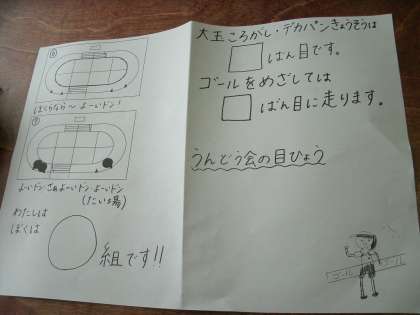 ⑥
ばくわなか〜よーいドン!
⑦
よーいドン さぁよーいドン よーいドン
(たいょ場)
わたしは
ぼくは
組です!!
大玉ころがし・デカパンきょうそうは
ばん目です。
ゴールをめざしては
ばん目に走ります。
うんどう会の目ひょう
ゴール